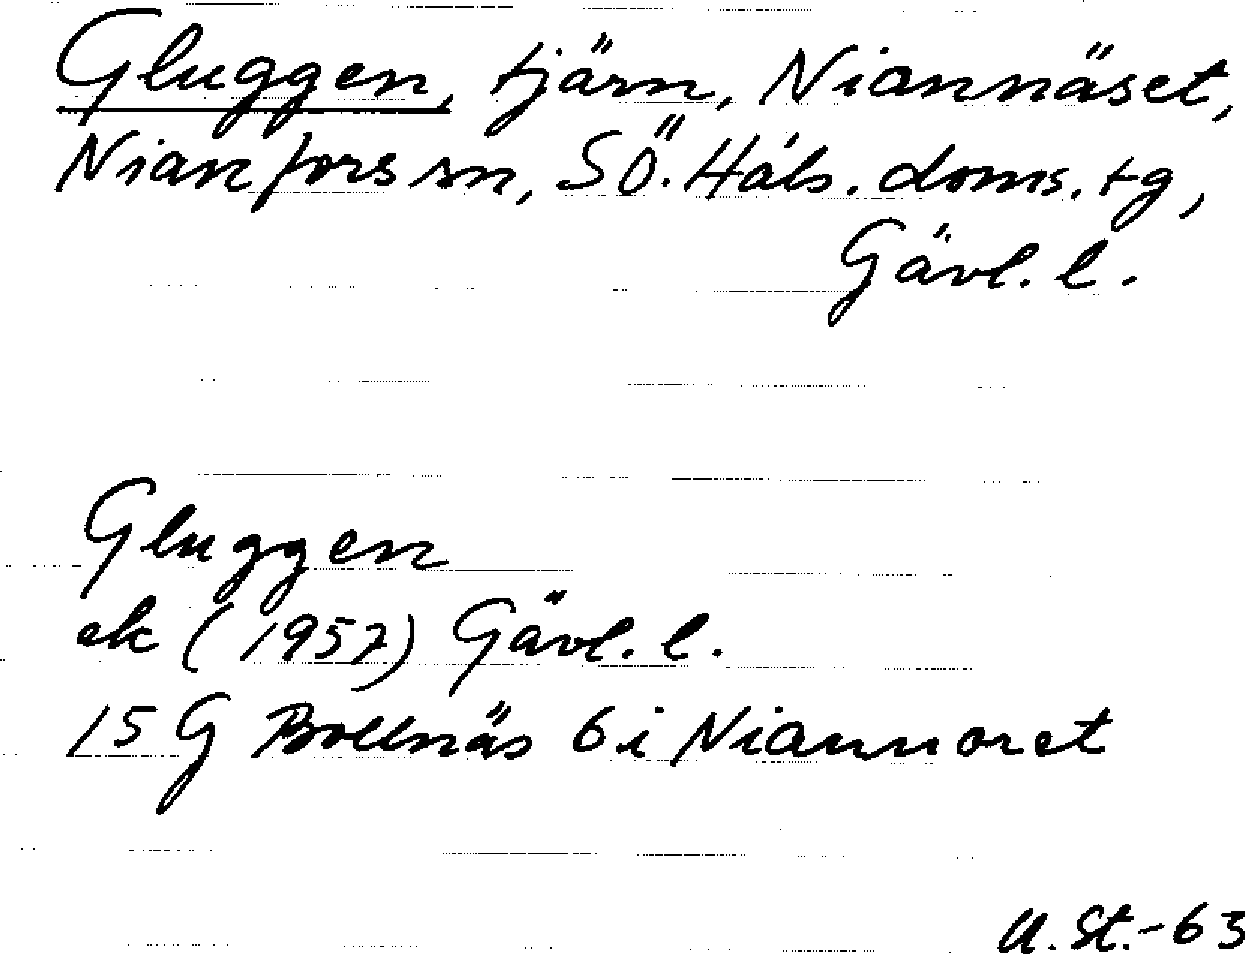 Gluggen, tjärn, Niannäset,
Nianfors sn, SÖ. Häls. doms. tg,
Gävl. l.
Gluggen
ek (1957) Gävl. l.
15 G Bollnäs 6 i Niannoret
U. St.-63